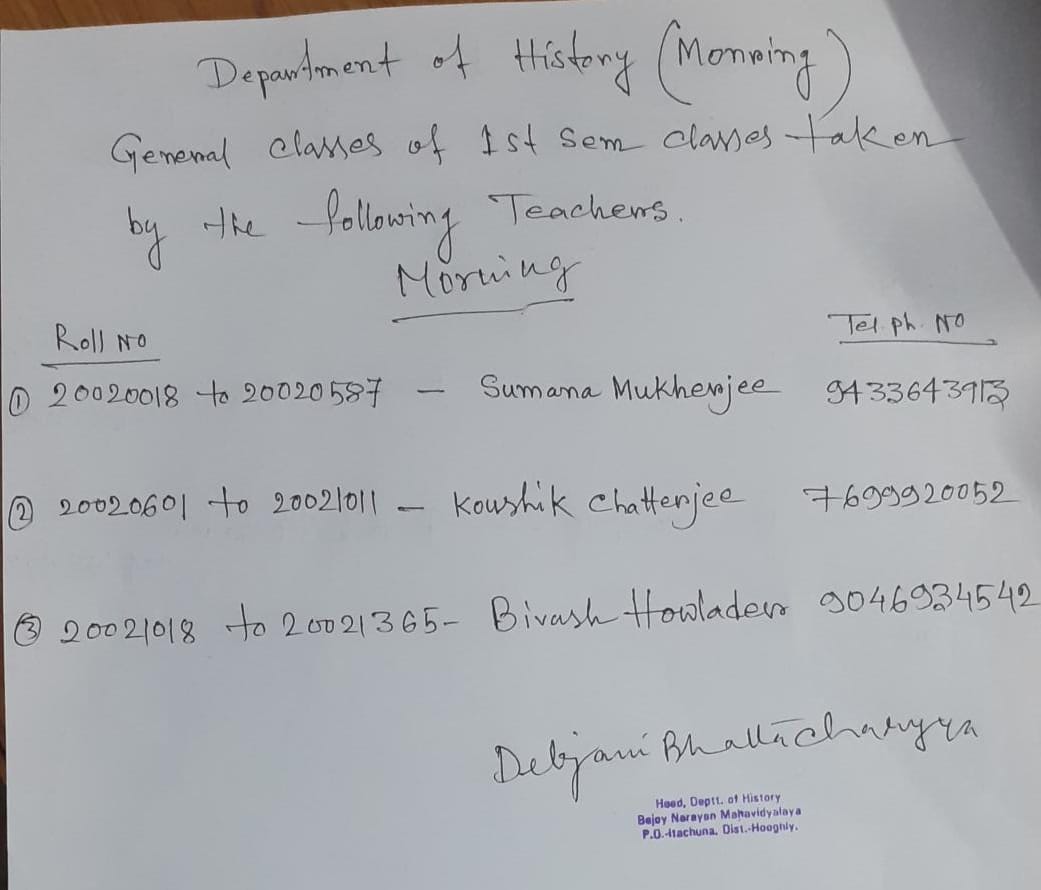 Department of History (Morning)
General classes of 1st Sem classes taken
by the following Teachers.
Morning
Roll No
Tel. ph. No
① 20020018 to 20020587 – Sumana Mukherjee 9433643913
② 20020601 to 20021011 – Koushik Chatterjee 7699920052
③ 20021018 to 20021365– Bivash Howlader 9046934542
Debjani Bhattacharyya
Head, Deptt. of History
Bejoy Narayan Mahavidyalaya
P.O.-Itachuna. Dist.-Hooghly.